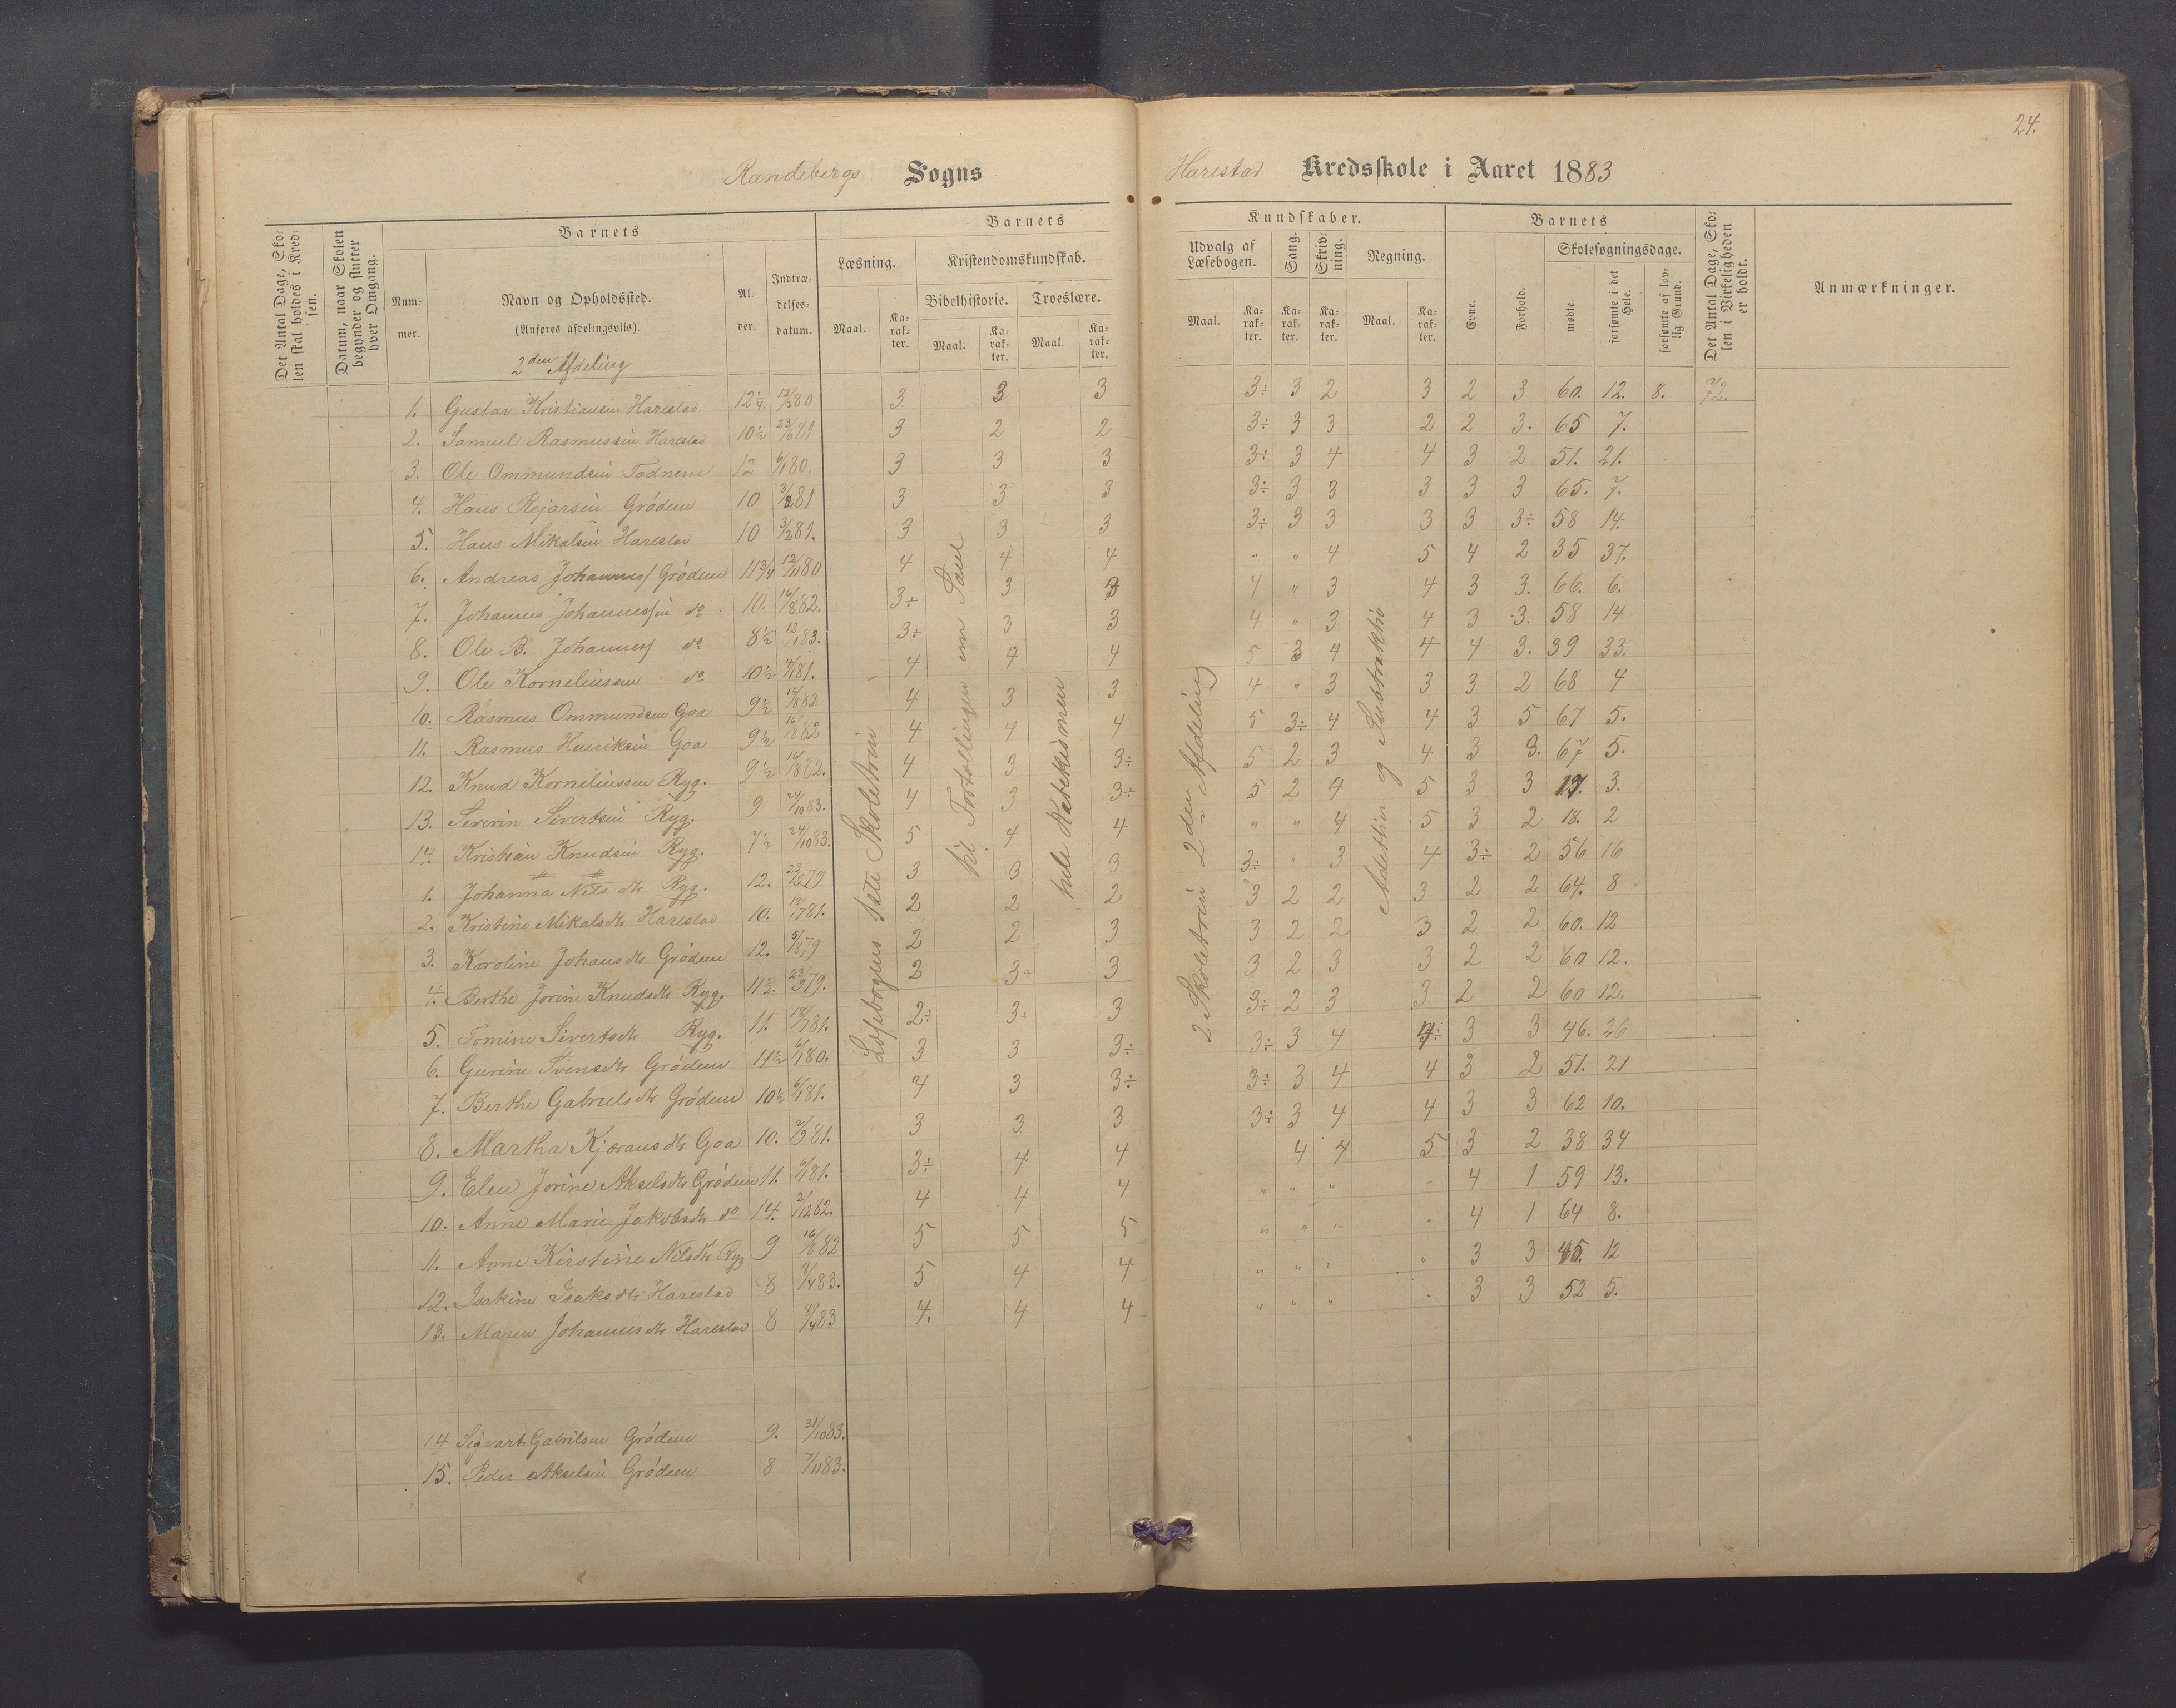 24.
Randebergs Sogns Harestad Kredsskole i Aaret 1883
Det Antal Dage, Skolen skal holdes i Kredsen.
Datum, naar Skolen begynder og slutter hver Omgang.
Barnets
Nummer.
Navn og Opholdssted.
(Anføres afdelingsvis).
Alder.
Indtrædelsesdatum.
Barnets Kundskaber.
Læsning.
Kristendomskundskab.
Bibelhistorie.
Troeslære.
Maal.
Karakter.
Maal.
Karakter.
Maal.
Karakter.
Udvalg af Læsebogen.
Sang.
Skrivning.
Regning.
Maal.
Karakter.
Karakter.
Karakter.
Maal.
Karakter.
Barnets
Evne.
Forhold.
Skolesøgningsdage.
mødte
forsømte i det Hele.
forsømte af lovlig Grund.
Det Antal Dage, Skolen i Virkeligheden er holdt.
Anmærkninger.
2den Afdeling
1. Gustav Kristiansen Harestad 12 1/4. 3 3 3 3÷ 3 2 3 2 3 60. 12. 8. 72.
2. Samuel Rasmussen Harestad 10 1/2 3 2 2 3÷ 3 3 2 2 3. 65 7.
3. Ole Ommundsen Todnem 12 6/1 80. 3 3 3 3÷ 3 4 4 3 2 51. 21.
4. Hans Rejarsen Grödem 10 3/2 81 3 3 3 3÷ 3 3 3 3 3 65. 7.
5. Hans Mikalsen Harestad 10 3/2 81. 3 3 3 3÷ 3 3 3 3 3÷ 58 14.
6. Andreas Johannes/ Grödem 11 3/4 12/11 80 4 4 4 " " 4 5 4 2 35 37.
7. Johannes Johannessen do 10. 16/8 82. 3÷ 3 3 4 " 3 4 3 3. 66. 6.
8. Ole B. Johannes/ do 8 1/2 12/1 83. 3÷ 3 3 4 " 3 4 3 3. 58 14
9. Ole Korneliussen do 10 1/2 4 4 4 5 3 4 4 4 3. 39 33.
10. Rasmus Ommundsen Goa 9 1/2 16/8 82 4 3 3 4 " 3 3 3 2 68 4
11. Rasmus Henriksen Goa 9 1/2 16/8 82 4 4 4 5 3÷ 4 4 3 5 67 5.
12. Knud Korneliussen Ryg. 9 1/2 16/8 82. 4 3 3÷ 5 2 3 4 3 3. 67 5.
13. Severin Sivertsen Ryg. 9 24/10 83. 4 3 3÷ 5 2 4 5 3 3 17. 3.
14. Kristian Knudsen Ryg. 7 1/2 24/10 83. 5 4 4 " " 4 5 3 2 18. 2
1. Johanna Nils dtr Ryg. 12. 3 3 3 3÷ " 3 4 3÷ 2 56 16
2. Kristine Mikalsdtr Harestad 10. 2 2 2 3 2 2 3 2 2 64. 8
3. Karoline Johansdtr Grödem 12. 2 2 3 3 2 2 3 2 2 60. 12
4. Berthe Jorine Knudsdtr Ryg. 11 1/2. 2 3+ 3 3 2 3 3 2 2 60 12.
5. Tomine Sivertsdtr Ryg. 11. 2÷ 3+ 3 3÷ 2 3 3 2 2 60 12.
6. Gurine Svensdtr Grödem 11 1/2 6/1 80. 3 3 3÷ 3÷ 3 4 3 3 46. 26
7. Berthe Gabrielsdtr Grödem 10 1/2 6/1 81. 4 3 3÷ 3÷ 3 4 4 3 2 51. 21
8. Martha Kjøransdtr Goa 10. 3 3 3 3÷ 3 4 4 3 3 62 10.
9. Elen Jorine Akselsdtr Grödem 11. 6/1 81. 3÷ 4 4 4 4 5 3 2 38 34
10. Anne Marie Jakobsdtr do 14. 2/12 82. 4 4 4 " " " " 4 1 59 13.
11. Anne Kirstine Nilsdtr Ryg 9 16/8 82 5 5 5 " " " " 4 1 64 8.
12. Isakine Isaksdtr Harestad 8 5 4 4 " " " " 3 3 45. 12
13. Maren Johannesdtr Harestad 8 4. 4 4 " " " " 3 3 52 5.
14 Sigvart Gabrilsen Grödem 9. 31/10 83.
15. Peder Akselsen Grödem 8 7/11 83.
Læsebogens 1ste Skoletrin
til Fortællingen om Saul
hele Katekismen
2 Skoletrin 2den Afdeling
Addition og Subtraktio